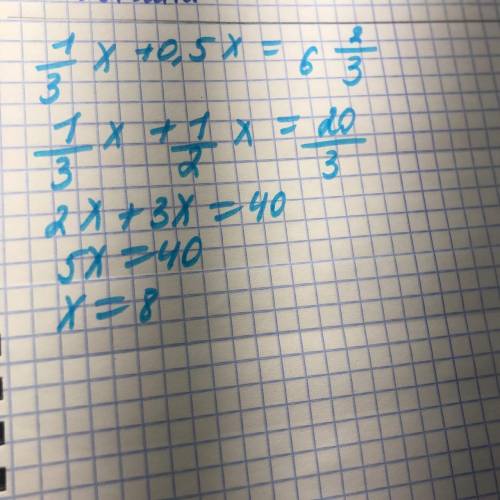 1/3 x + 0,5x = 6 2/3
1/3 x + 1/2 x = 20/3
2x + 3x = 40
5x = 40
x = 8